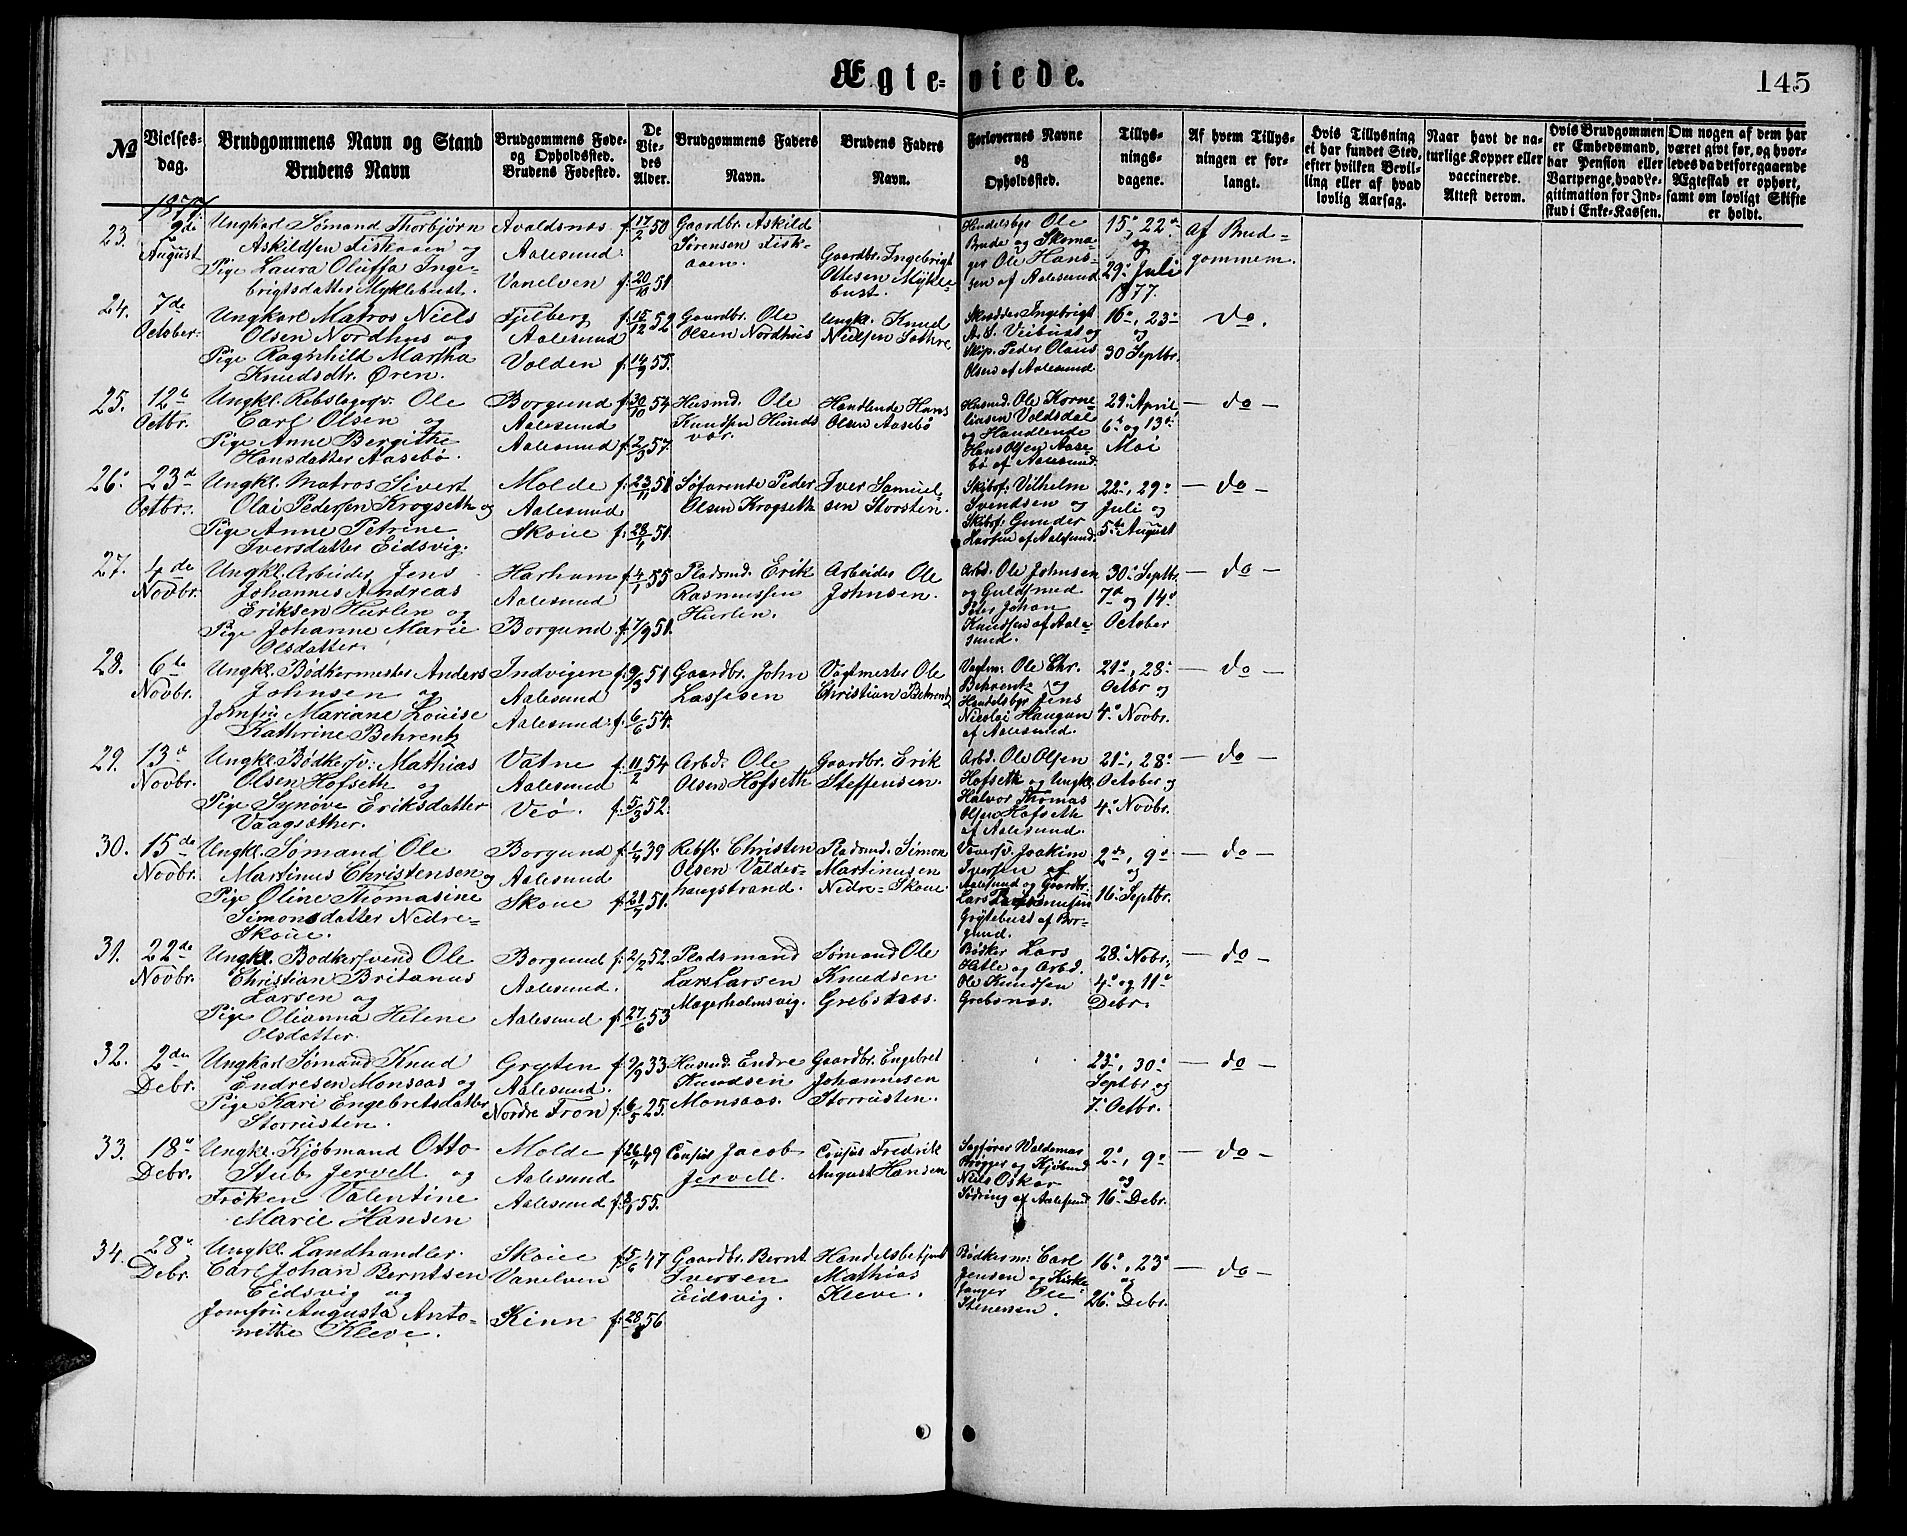 Ægte=viede.
145
№
Vielses-
dag.
Brudgommens Navn og Stand
Brudens Navn
Brudgommens Føde-
og Opholdssted.
Brudens Fødested.
De
Vie-
des
Alder.
Brudgommens Faders
Navn.
Brudens Faders
Navn.
Forlovernes Navne
og
Opholdssted.
Tillys-
nings-
dagene.
Af hvem Tillys-
ningen er for-
langt.
Hvis Tillysning
ei har fundet Sted,
efter hvilken Bevil-
ling eller af hvad
lovlig Aarsag.
Naar havt de na-
turlige Kopper eller
vaccinerede.
Attest derom.
Hvis Brudgommen
er Embedsmand,
har Pension eller
Vartpenge, hvad Le-
gitimation for Ind-
skud i Enke-Kassen.
Om nogen af dem har
været givt før, og hvor-
ledes da det foregaaende
Ægteskab er ophørt,
samt om lovligt Skifte
er holdt.
1877.
23.
2de
August
Ungkarl Sømand Thorbjørn
Askildsen Fiskaaen og
Pige Laura Oluffa Inge-
brigtsdatter Myklebust.
Avaldsnæs
Aalesund.
Vanelven
f. 17/2 50
f. 20/10 51
Gaardbr. Askild
Sørensen Fisk-
aaen.
Gaardbr. Ingebrigt
Ottesen Mykle-
bust.
Handelsbgr Ole
Brude og Skoma-
ger Ole Hans-
sen af Aalesund
15, 22
og
29 Juli
1877.
Af Brud-
gommen.
24.
7de
October.
Ungkarl Matros Niels
Olsen Nordhus og
Pige Ragnhild Martha
Knudsdtr. Øren.
Fjelberg
Aalesund
Volden
f. 15/12 52
f. 14/9 55.
Gaardbr. Ole
Olsen Nordhuus
Ungk. Knud
Nielsen Sæthre
Skrædder Ingebrigt
A. S. Veibust og
Skip. Peder Olaus
Olsen af Aalesund
16, 23
og
30 Septbr.
do.
25.
12
Octbr.
Ungkl. Rebslagersv. Ole
Carl Olsen og
Pige Anne Bergithe
Hansdatter Aasebø.
Borgund
Aalesund
Aalesund
f. 30/10 54
f. 2/3 57.
Husmd. Ole
Knudsen Hunds
vær.
Handlende Hans
Olsen Aasebø
Husmd. Ole Korne-
liusen Voldsdal
og Handlende
Hans Olsen Aase-
bø af Aalesund.
29 April,
6 og 13
Mai
— do —
26.
23d
Octbr.
Ungkl. Matros Sivert
Olai Pedersen Krogseth og
Pige Anne Petrine
Iversdatter Eidsvig.
Molde
Aalesund
Skoue
f. 23/11 51
f. 28/4 51.
Søfarende Peder
Olsen Krogseth
Iver Samuel-
sen Storsten.
Skibsf. Vilhelm
Svendsen og
Skibsf. Gunder
Larsen af Aalesund.
22, 29
Juli og
5te August
— do —
27.
4de
Novbr.
Ungkl. Arbeider Jens
Johannes Andreas
Eriksen Hurlen og
Pige Johanne Marie
Olsdatter.
Harham
Aalesund
Borgund.
f. 4/1 55
f. 7/9 51.
Pladsmd. Erik
Rasmussen
Hurlen.
Arbeider Ole
Johnsen.
Arbd. Ole Johnsen
og Guldsmed
Peter Johan
Knudsen af Aale-
sund.
30 Septbr.
7 og 14
October
— do —
28.
6te
Novbr.
Ungkl. Bødkermester Anders
Johnsen og
Jomfru Mariane Louise
Kathrine Behrentz
Indvigen
Aalesund
Aalesund.
f. 9/3 51
f. 6/6 54.
Gaardbr. John
Lassesen
Vagtmester Ole
Christian Behrentz
Vagtm. Ole Chr.
Behrentz og
Handelsbgr Jens
Nicolai Haugan
af Aalesund.
21, 28
Octbr og
4 Novbr.
— do —
29.
13
Novbr.
Ungkl. Bødkersv. Mathias
Olsen Hofseth og
Pige Synøve Eriksdatter
Vaagsæther.
Vatne
Aalesund
Veø.
f. 11/2 54
f. 5/3 52.
Arbd. Ole
Olsen Hofseth
Gaardbr. Erik
Steffensen.
Arbd. Ole Olsen
Hofseth og Ungkl.
Halvor Thomas
Olsen Hofseth
af Aalesund.
21, 28
October og
4 Novbr.
do —
30.
15de
Novbr.
Ungkl. Sømand Ole
Martinus Christensen og
Pige Oline Thomasine
Simonsdatter Nedre-
Skoue.
Borgund
Aalesund
Skoue
f. 1/4 39
f. 21/4 51.
Rebsl. Christen
Olsen Valder-
haugstrand.
Pladsmd. Simon
Martinusen
Nedre-Skoue
Væversv. Joakim
Iversen af
Aalesund og Gaardbr.
Lars Rasmussen
Grytebust af Bor-
gund.
2de, 9
og
16 Septbr.
— do —
31.
22de
Novbr.
Ungkl. Bødkersvend Ole
Christian Britanus
Larsen og
Pige Olianna Helene
Olsdatter.
Borgund
Aalesund.
Aalesund
f. 2/2 52.
f. 27/6 53
Pladsmand
Lars Larsen
Magerholmsvig.
Sømand Ole
Knudsen
Grebstnæs.
Bødker Lars
Hatle og Arbd.
Ole Knudsen
Grebsnæs.
28 Novbr.,
4 og 11
Debr.
— do —
32.
2den
Debr.
Ungkarl Sømand Knud
Endresen Monsaas og
Pige Kari Engebretsdatter
Storrusten.
Gryten
Aalesund.
Nordre Fron
f. 9/9 33
f. 6/5 25.
Husmd. Endre
Knudsen
Monsaas.
Gaardbr. Engebret
Johannesen
Storrusten.
23, 30
Septbr og
7 Octbr.
— do —
33.
18
Debr.
Ungkl. Kjøbmand Otto
Stub Jervell og
Frøken Valentine
Marie Hansen
Molde
Aalesund
Aalesund
f. 26/4 49
55.
Consul Jacob
Jervell.
Consul Fredrik
August Hansen
Sagfører Waldemar
Brøgger og Kjøbmd
Niels Oskar
Sødring af Aalesund
2, 9
og
16 Debr.
— do —
34.
28
Debr.
Ungkl. Landhandler
Carl Johan Berntsen
Eidsvig og
Jomfru Augusta Anto-
nethe Kleve.
Skoue
Vanelven
Kinn
f. 5/6 47
f. 28/8 56
Gaardbr. Bernt
Iversen
Eidsvig.
Handelsbetjent
Mathias
Kleve.
Bødkerm. Carl
Jensen og Kirke-
sanger Ole
Stenersen.
16, 23
og
26 Debr.
— do —